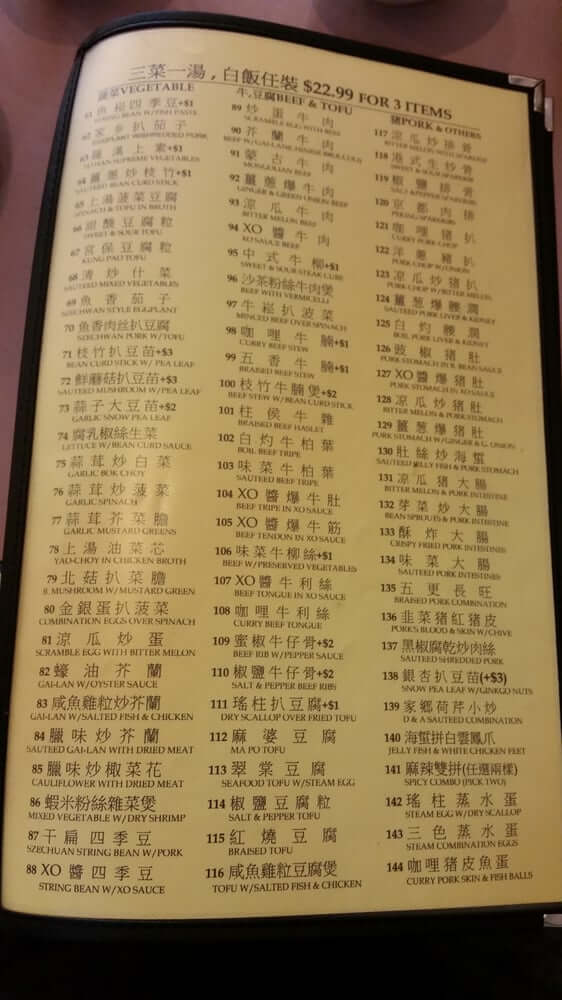 三菜一湯,白飯任裝 $22.99 FOR 3 ITEMS
蔬菜VEGETABLE
61 魚柳四季豆+$1
STRING BEAN W/FISH PASTE
62 家鄉扒茄子
EGGPLANT W/SHREDDED PORK
63 羅漢上素+$1
SUPREME VEGETABLES
64 薑蔥炒枝竹+$1
SAUTEED BEAN CURD STICK
65 上湯菠菜豆腐
SPINACH & TOFU IN BROTH
66 甜酸豆腐粒
SWEET & SOUR TOFU
67 宮保豆腐粒
KUNG PAO TOFU
68 清炒什菜
SAUTEED MIXED VEGETABLES
69 魚香茄子
SZECHWAN STYLE EGGPLANT
70 魚香肉丝扒豆腐
SZECHWAN PORK W/TOFU
71 枝竹扒豆苗+$3
BEAN CURD STICK W/ PEA LEAF
72 鮮蘑菇扒豆苗+$3
SAUTEED MUSHROOM W/PEA LEAF
73 蒜子大豆苗+$2
GARLIC SNOW PEA LEAF
74 腐乳椒絲生菜
LETTUCE W/BEAN CURD SAUCE
75 蒜茸炒白菜
GARLIC BOK CHOY
76 蒜茸炒菠菜
GARLIC SPINACH
77 蒜茸芥菜膽
GARLIC MUSTARD GREENS
78 上湯油菜芯
YAO-CHOY IN CHICKEN BROTH
79 北菇扒菜膽
B. MUSHROOM W/MUSTARD GREEN
80 金銀蛋扒菠菜
COMBINATION EGGS OVER SPINACH
81 涼瓜炒蛋
SCRAMBLE EGG WITH BITTER MELON
82 蠔油芥蘭
GAI-LAN W/OYSTER SAUCE
83 咸魚雞粒炒芥蘭
GAI-LAN W/SALTED FISH & CHICKEN
84 臘味炒芥蘭
SAUTEED GAI-LAN WITH DRIED MEAT
85 臘味炒椰菜花
CAULIFLOWER WITH DRIED MEAT
86 蝦米粉絲雜菜煲
MIXED VEGETABLE W/DRY SHRIMP
87 干扁四季豆
SZECHUAN STRING BEAN W/PORK
88 XO醬四季豆
STRING BEAN W/XO SAUCE
牛,豆腐BEEF & TOFU
89 炒蛋牛肉
SCRAMBLE EGG WITH BEEF
90 芥蘭牛肉
BEEF W/GAI-LAN CHINESE BROCCOLI
91 蒙古牛肉
MONGOLIAN BEEF
92 薑蔥爆牛肉
GINGER & GREEN ONION BEEF
93 涼瓜牛肉
BITTER MELON BEEF
94 XO醬牛肉
XO SAUCE BEEF
95 中式牛柳+$1
SWEET & SOUR STEAK CUBE
96 沙茶粉絲牛肉煲
BEEF WITH VERMICELLI
97 牛崧扒菠菜
MINCED BEEF OVER SPINACH
98 咖哩牛腩+$1
CURRY BEEF STEW
99 五香牛腩+$1
BRAISED BEEF STEW
100 枝竹牛腩煲+$2
BEEF STEW W/BEAN CURD STICK
101 柱侯牛雜
BRAISED BEEF HASLET
102 白灼牛柏葉
BOIL BEEF TRIPE
103 味菜牛柏葉
SAUTEED BEEF TRIPE
104 XO醬爆牛肚
BEEF TRIPE IN XO SAUCE
105 XO醬爆牛筋
BEEF TENDON IN XO SAUCE
106 味菜牛柳絲+$1
BEEF W/PRESERVED VEGETABLES
107 XO醬牛利絲
BEEF TONGUE IN XO SAUCE
108 咖哩牛利絲
CURRY BEEF TONGUE
109 蜜椒牛仔骨+$2
BEEF RIB W/PEPPER SAUCE
110 椒鹽牛仔骨+$2
SALT & PEPPER BEEF RIBS
111 瑤柱扒豆腐+$1
DRY SCALLOP OVER FRIED TOFU
112 麻婆豆腐
MA PO TOFU
113 翠棠豆腐
SEAFOOD TOFU W/STEAM EGG
114 椒鹽豆腐粒
SALT & PEPPER TOFU
115 紅燒豆腐
BRAISED TOFU
116 咸魚雞粒豆腐煲
TOFU W/SALTED FISH & CHICKEN
豬PORK & OTHERS
117 涼瓜炒排骨
BITTER MELON W/SPARERIB
118 港式生炒骨
SWEET & SOUR SPARERIB
119 椒鹽排骨
SALT & PEPPER SPARERIBS
120 京都肉排
PEKING SPARERIBS
121 咖哩豬扒
CURRY PORK CHOP
122 洋蔥豬扒
PORK CHOP W/ONION
123 涼瓜炒豬扒
PORK CHOP W/BITTER MELON
124 薑蔥爆腰潤
SAUTEED PORK LIVER & KIDNEY
125 白灼腰潤
BOIL PORK LIVER & KIDNEY
126 豉椒豬肚
PORK STOMACH IN B. BEAN SAUCE
127 XO醬爆豬肚
PORK STOMACH IN XO SAUCE
128 涼瓜炒豬肚
BITTER MELON & PORK STOMACH
129 薑蔥爆豬肚
PORK STOMACH W/GINGER & G. ONION
130 肚絲炒海蜇
SAUTEED JELLY FISH & PORK STOMACH
131 涼瓜豬大腸
BITTER MELON & PORK INTESTINE
132 芽菜炒大腸
BEAN SPROUTS & PORK INTESTINE
133 酥炸大腸
CRISPY FRIED PORK INTESTINES
134 味菜大腸
SAUTEED PORK INTESTINES
135 五更長旺
BRAISED PORK COMBINATION
136 韭菜豬紅豬皮
PORK'S BLOOD & SKIN W/CHIVE
137 黑椒腐乾炒肉絲
SAUTEED SHREDDED PORK
138 銀杏扒豆苗(+$3)
SNOW PEA LEAF W/GINKGO NUTS
139 家鄉荷芹小炒
D & A SAUTEED COMBINATION
140 海蜇拼白雲鳳爪
JELLY FISH & WHITE CHICKEN FEET
141 麻辣雙拼(任選兩樣)
SPICY COMBO (PICK TWO)
142 瑤柱蒸水蛋
STEAM EGG W/DRY SCALLOP
143 三色蒸水蛋
STEAM COMBINATION EGGS
144 咖哩豬皮魚蛋
CURRY PORK SKIN & FISH BALLS